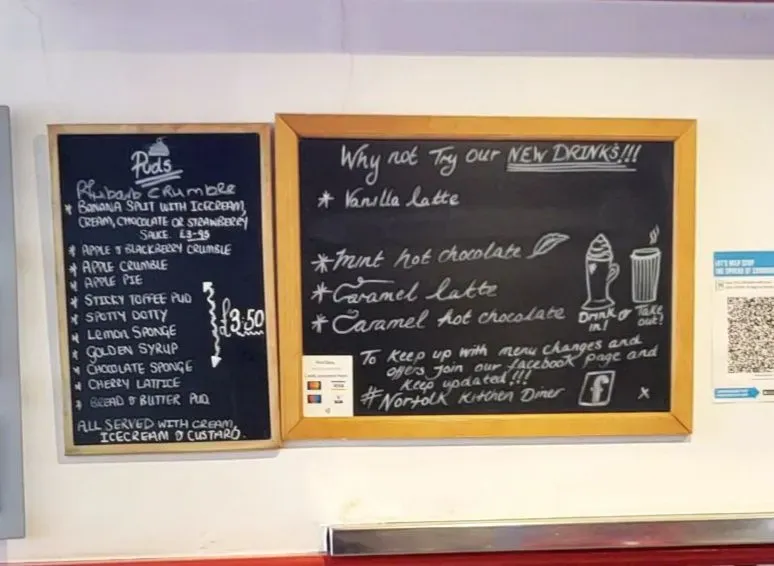 Puds
Rhubarb Crumble
* BANANA SPLIT WITH ICECREAM,
CREAM, CHOCOLATE OR STRAWBERRY
SAUCE. £3-95
* APPLE & BLACKBERRY CRUMBLE
* APPLE CRUMBLE
* APPLE PIE
* STICKY TOFFEE PUD
* SPOTTY DOTTY
* LEMON SPONGE
* GOLDEN SYRUP
* CHOCOLATE SPONGE
* CHERRY LATTICE
* BREAD & BUTTER PUD
£3.50
ALL SERVED WITH CREAM,
ICECREAM & CUSTARD.
Why not Try our NEW DRINKS!!!
* Vanilla latte
* Mint hot chocolate
* Caramel latte
* Caramel hot chocolate
Drink or Take
in! out!
To keep up with menu changes and
offers join our facebook page and
keep updated!!!
# Norfolk Kitchen Diner
f
x
LET'S HELP STOP
THE SPREAD OF